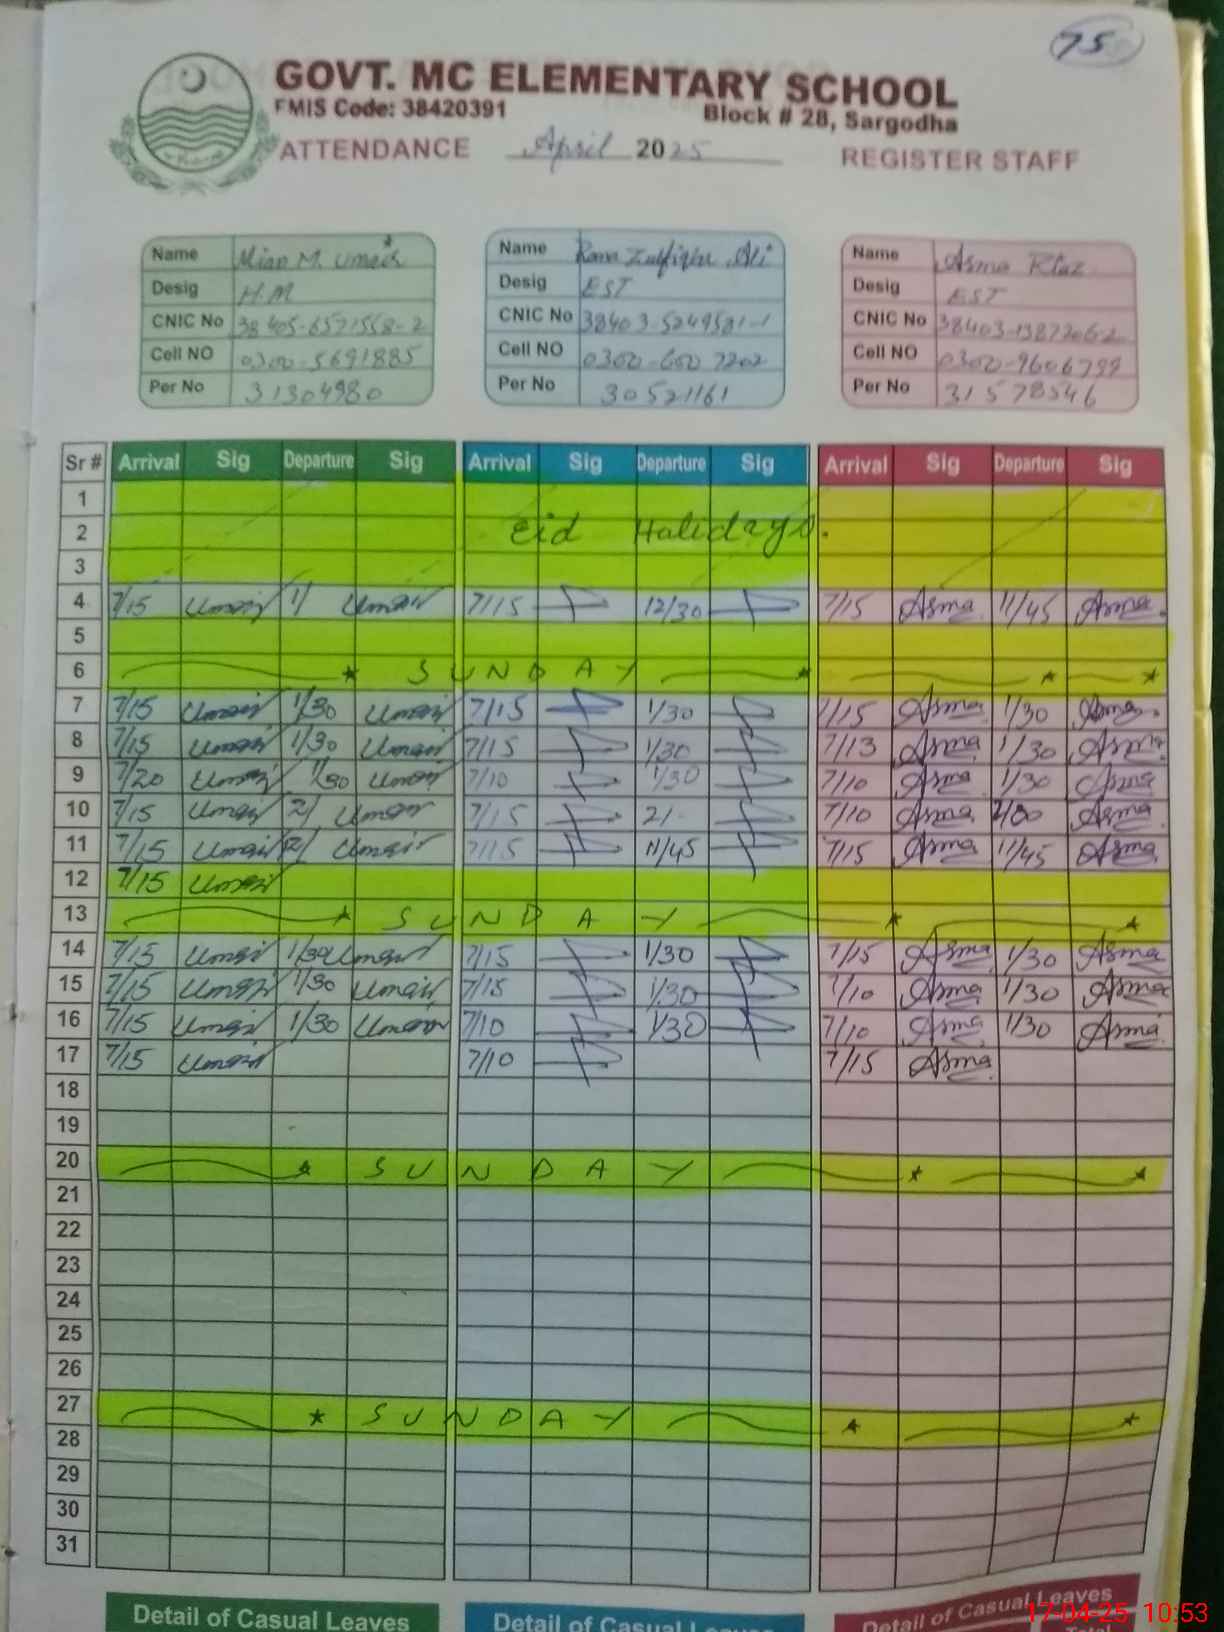 75
GOVT. MC ELEMENTARY SCHOOL
EMIS Code: 38420391 Block # 28, Sargodha
ATTENDANCE April 2025 REGISTER STAFF
Name Mian M. Umair Name Rana Zulfiqar Ali Name Asma Riaz
Desig H.M Desig EST Desig EST
CNIC No 38405-6571568-2 CNIC No 38403-5249581-1 CNIC No
Cell NO 0300-5691885 Cell NO 0300-6007202 Cell NO 0300-9606799
Per No 31304980 Per No 30521161 Per No 31578546
Sr # Arrival Sig Departure Sig Arrival Sig Departure Sig Arrival Sig Departure Sig
1
2 Eid Halidays.
3
4 7/15 Umair 1/ Umair 7/15 12/30 7/15 Asma 11/45 Asma
5
6 SUNDAY
7 7/15 Umair 1/30 Umair 7/15 1/30 7/15 Asma 1/30 Asma
8 7/15 Umair 1/30 Umair 7/15 1/30 7/13 Asma 1/30 Asma
9 7/20 Umair 1/30 Umair 7/10 1/30 7/10 Asma 1/30 Asma
10 7/15 Umair 2/ Umair 7/15 2/ 7/10 Asma Asma
11 7/15 Umair Umair 7/15 11/45 7/15 Asma 11/45 Asma
12 7/15 Umair
13 SUNDAY
14 7/15 Umair 1/30 Umair 7/15 1/30 7/15 Asma 1/30 Asma
15 7/15 Umair 1/30 Umair 7/15 1/30 7/10 Asma 1/30 Asma
16 7/15 Umair 1/30 Umair 7/10 1/30 7/10 Asma 1/30 Asma
17 7/15 Umair 7/10 7/15 Asma
18
19
20 SUNDAY
21
22
23
24
25
26
27 SUNDAY
28
29
30
31
Detail of Casual Leaves Detail of Casual Leaves Detail of Casual Leaves
Total
17-04-25 10:53